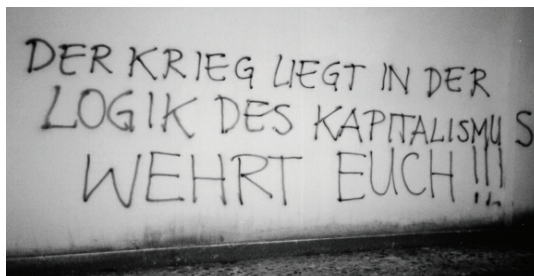 DER KRIEG LIEGT IN DER
LOGIK DES KAPITALISMUS
WEHRT EUCH!!!